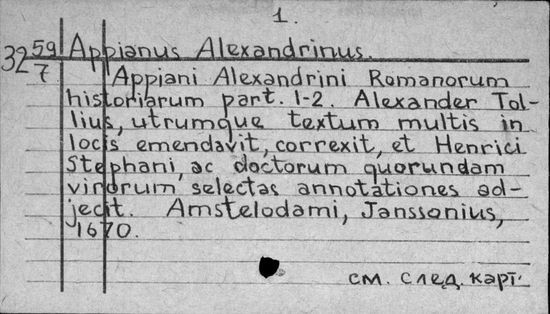 1.
32 59/7 Appianus Alexandrinus.
Appiani Alexandrini Romanorum
historiarum part. 1-2. Alexander Tol-
lius, utrumque textum multis in
locis emendavit, correxit, et Henrici
Stephani, ac doctorum quorundam
virorum selectas annotationes ad-
jecit. Amstelodami, Janssonius,
1670.
см. след. карт.